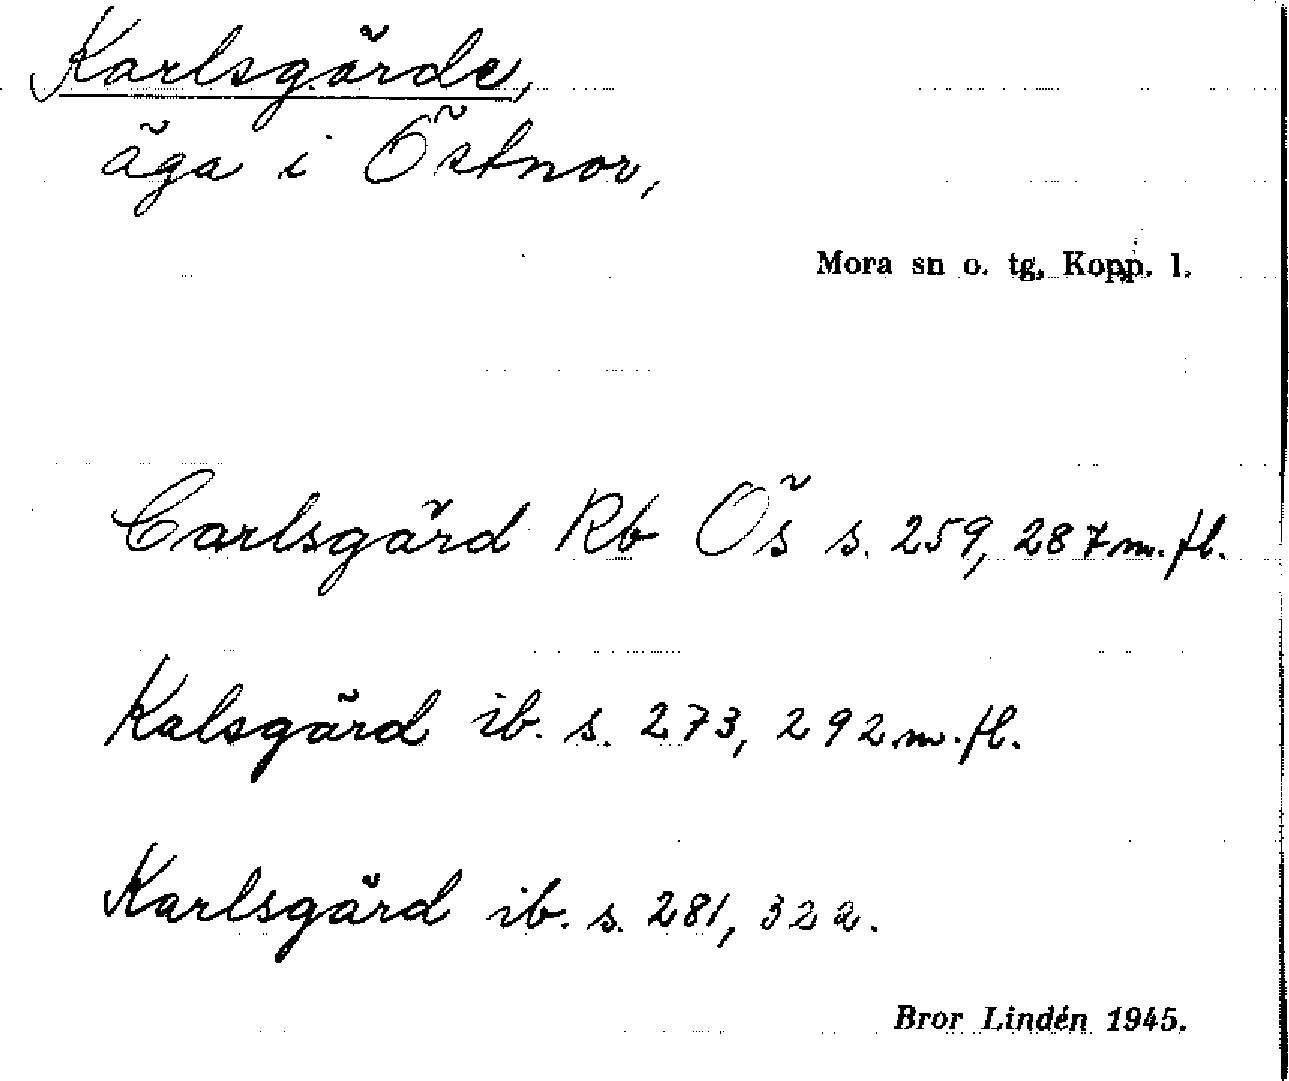 Karlsgärde,
äga i Östnor,
Mora sn o. tg, Kopp. l.
Carlsgärd Rb Ös s. 259, 287 m.fl.
Kalsgärd ib. s. 273, 292 m.fl.
Karlsgärd ib. s. 281, 32a.
Bror Lindén 1945.